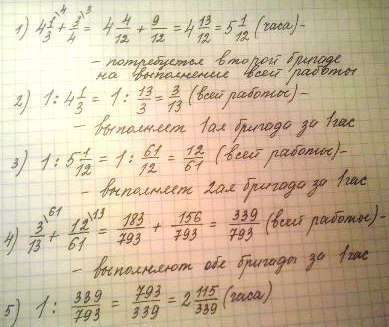 1) 4 1/3^4 + 3/4^3 = 4 4/12 + 9/12 = 4 13/12 = 5 1/12 (часа) -
- потребуется второй бригаде
на выполнение всей работы
2) 1 : 4 1/3 = 1 : 13/3 = 3/13 (всей работы) -
- выполняет 1ая бригада за 1 час
3) 1 : 5 1/12 = 1 : 61/12 = 12/61 (всей работы) -
- выполняет 2ая бригада за 1 час
4) 3/13^61 + 12/61^13 = 183/793 + 156/793 = 339/793 (всей работы) -
- выполняют обе бригады за 1 час
5) 1 : 339/793 = 793/339 = 2 115/339 (часа)